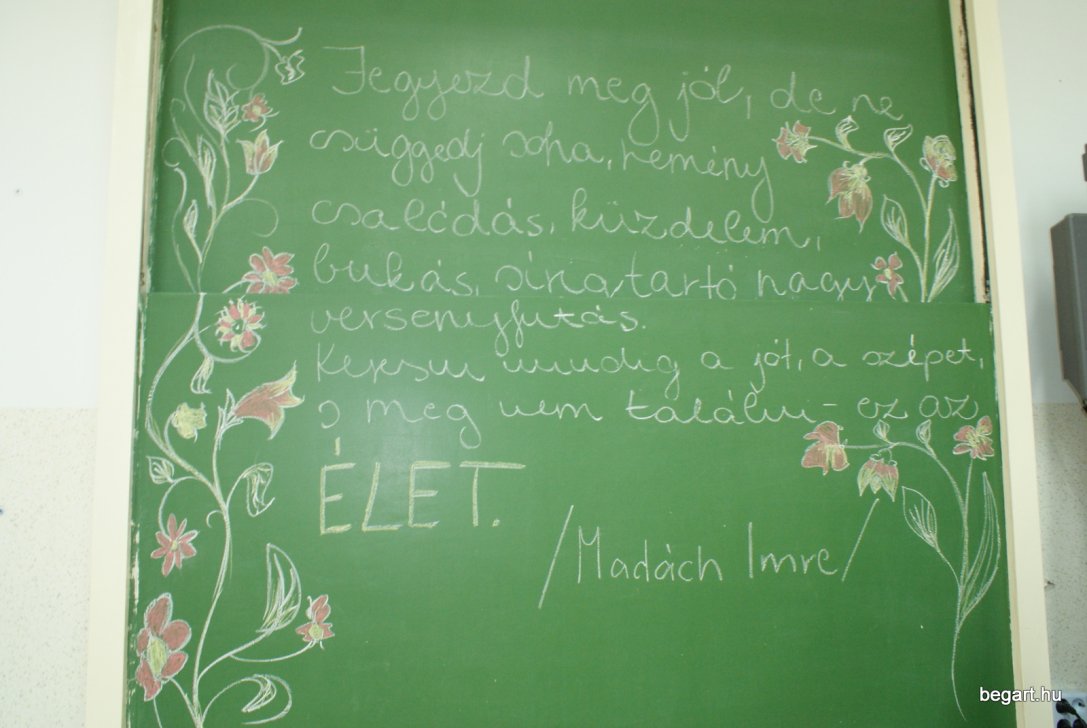 Jegyezd meg jól, de ne
csüggedj soha, remény
csalódás, küzdelem,
bukás, sírigtartó nagy
versenyfutás.
Keresni mindig a jót, a szépet,
s meg nem találni - ez az
ÉLET.
/Madách Imre/
begart.hu